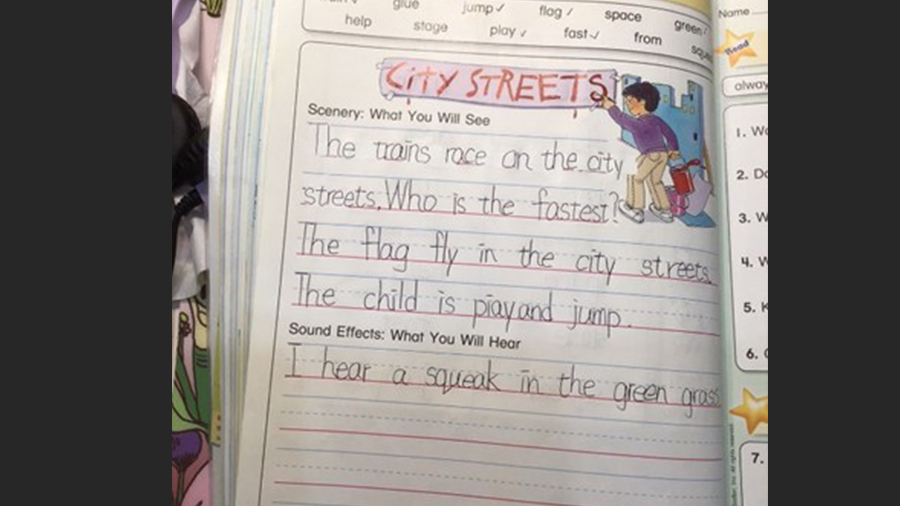 glue jump ✓ flag ✓ space green
help stage play ✓ fast ✓ from
CITY STREETS
Scenery: What You Will See
The trains race on the city
streets. Who is the fastest?
The flag fly in the city streets.
The child is play and jump.
Sound Effects: What You Will Hear
I hear a squeak in the green grass
Name
Read
1.
2.
3.
4.
5.
6.
7.